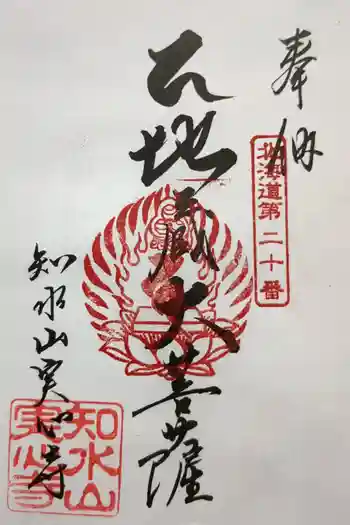 奉納
北海道第二十番
地蔵大菩薩
知水山実心寺
知水山
実心寺